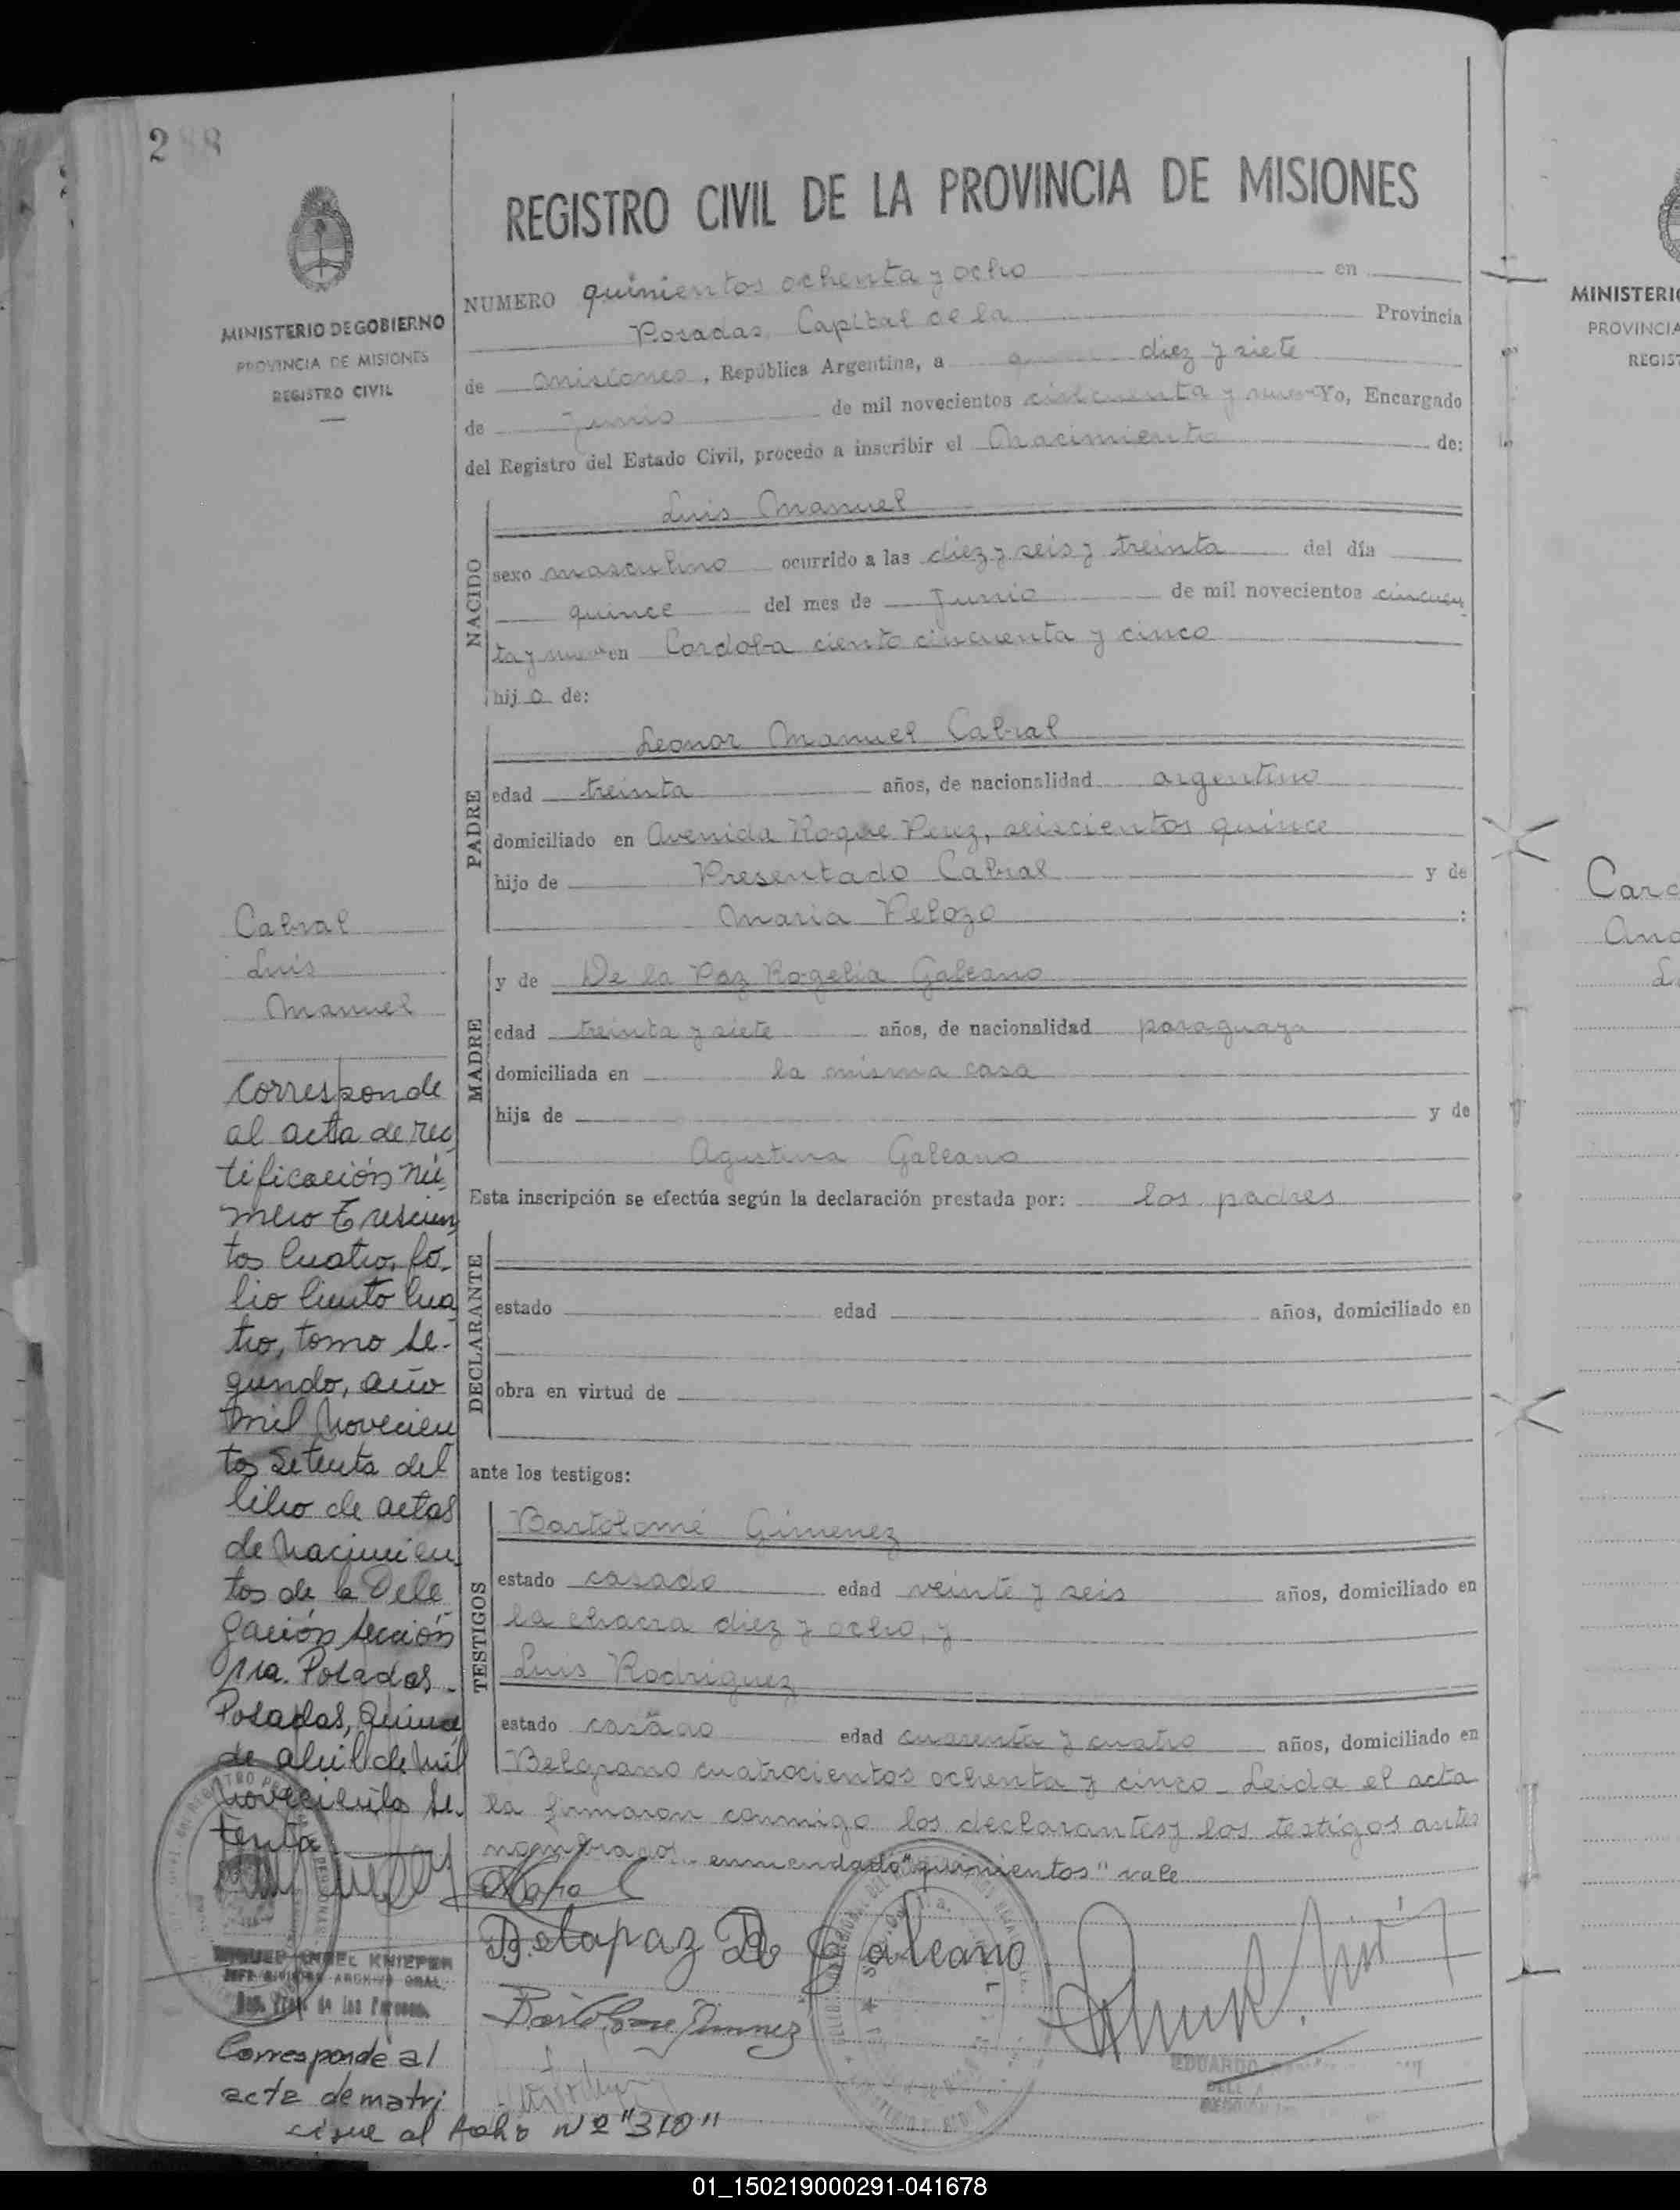 288
REGISTRO CIVIL DE LA PROVINCIA DE MISIONES
MINISTERIO DE GOBIERNO
PROVINCIA DE MISIONES
REGISTRO CIVIL
NUMERO quinientos ochenta y ocho en
Posadas, Capital de la Provincia
de Misiones, República Argentina, a diez y siete
de Junio de mil novecientos cincuenta y nueve Yo, Encargado
del Registro del Estado Civil, procedo a inscribir el Nacimiento de:
NACIDO
Luis Manuel
sexo masculino ocurrido a las diez y seis y treinta del día
quince del mes de Junio de mil novecientos cincuen
ta y nueve en Cordoba ciento cincuenta y cinco
hijo de:
PADRE
Leonor Manuel Cabral
edad treinta años, de nacionalidad argentino
domiciliado en Avenida Roque Perez, seiscientos quince
hijo de Presentado Cabral y de
Maria Velozo :
MADRE
y de De la Paz Rogelia Galeano
edad treinta y siete años, de nacionalidad paraguaya
domiciliada en la misma casa
hija de y de
Agustina Galeano
Esta inscripción se efectúa según la declaración prestada por: los padres
DECLARANTE
estado edad años, domiciliado en
obra en virtud de
ante los testigos:
TESTIGOS
Bartolomé Gimenez
estado casado edad veinte y seis años, domiciliado en
la chacra diez y ocho, y
Luis Rodriguez
estado casado edad cuarenta y cuatro años, domiciliado en
Belgrano cuatrocientos ochenta y cinco _ Leida el acta
la firmaron conmigo los declarantes y los testigos antes
nombrados _ enmendado "quinientos" vale
Delapaz R de Galeano
Bartolome Jimenez
EDUARDO
Cabral
Luis
Manuel
Corresponde
al acta de rec
tificación nú
mero Trescien
tos cuatro, fo-
lio ciento cua
tro, tomo se-
gundo, año
mil novecien
tos setenta del
libro de actas
de nacimien
tos de la Dele
gación sección
1ra. Posadas _
Posadas, quince
de abril de mil
novecientos se-
tenta
MIGUEL ANGEL KNIEPER
JEFE DIVISION ARCHIVO GRAL.
de las Personas
Corresponde al
acta de matri
sigue al folio Nº "310"
MINISTERIO
PROVINCIA
REGIST
Card
Ana
L
01_150219000291-041678